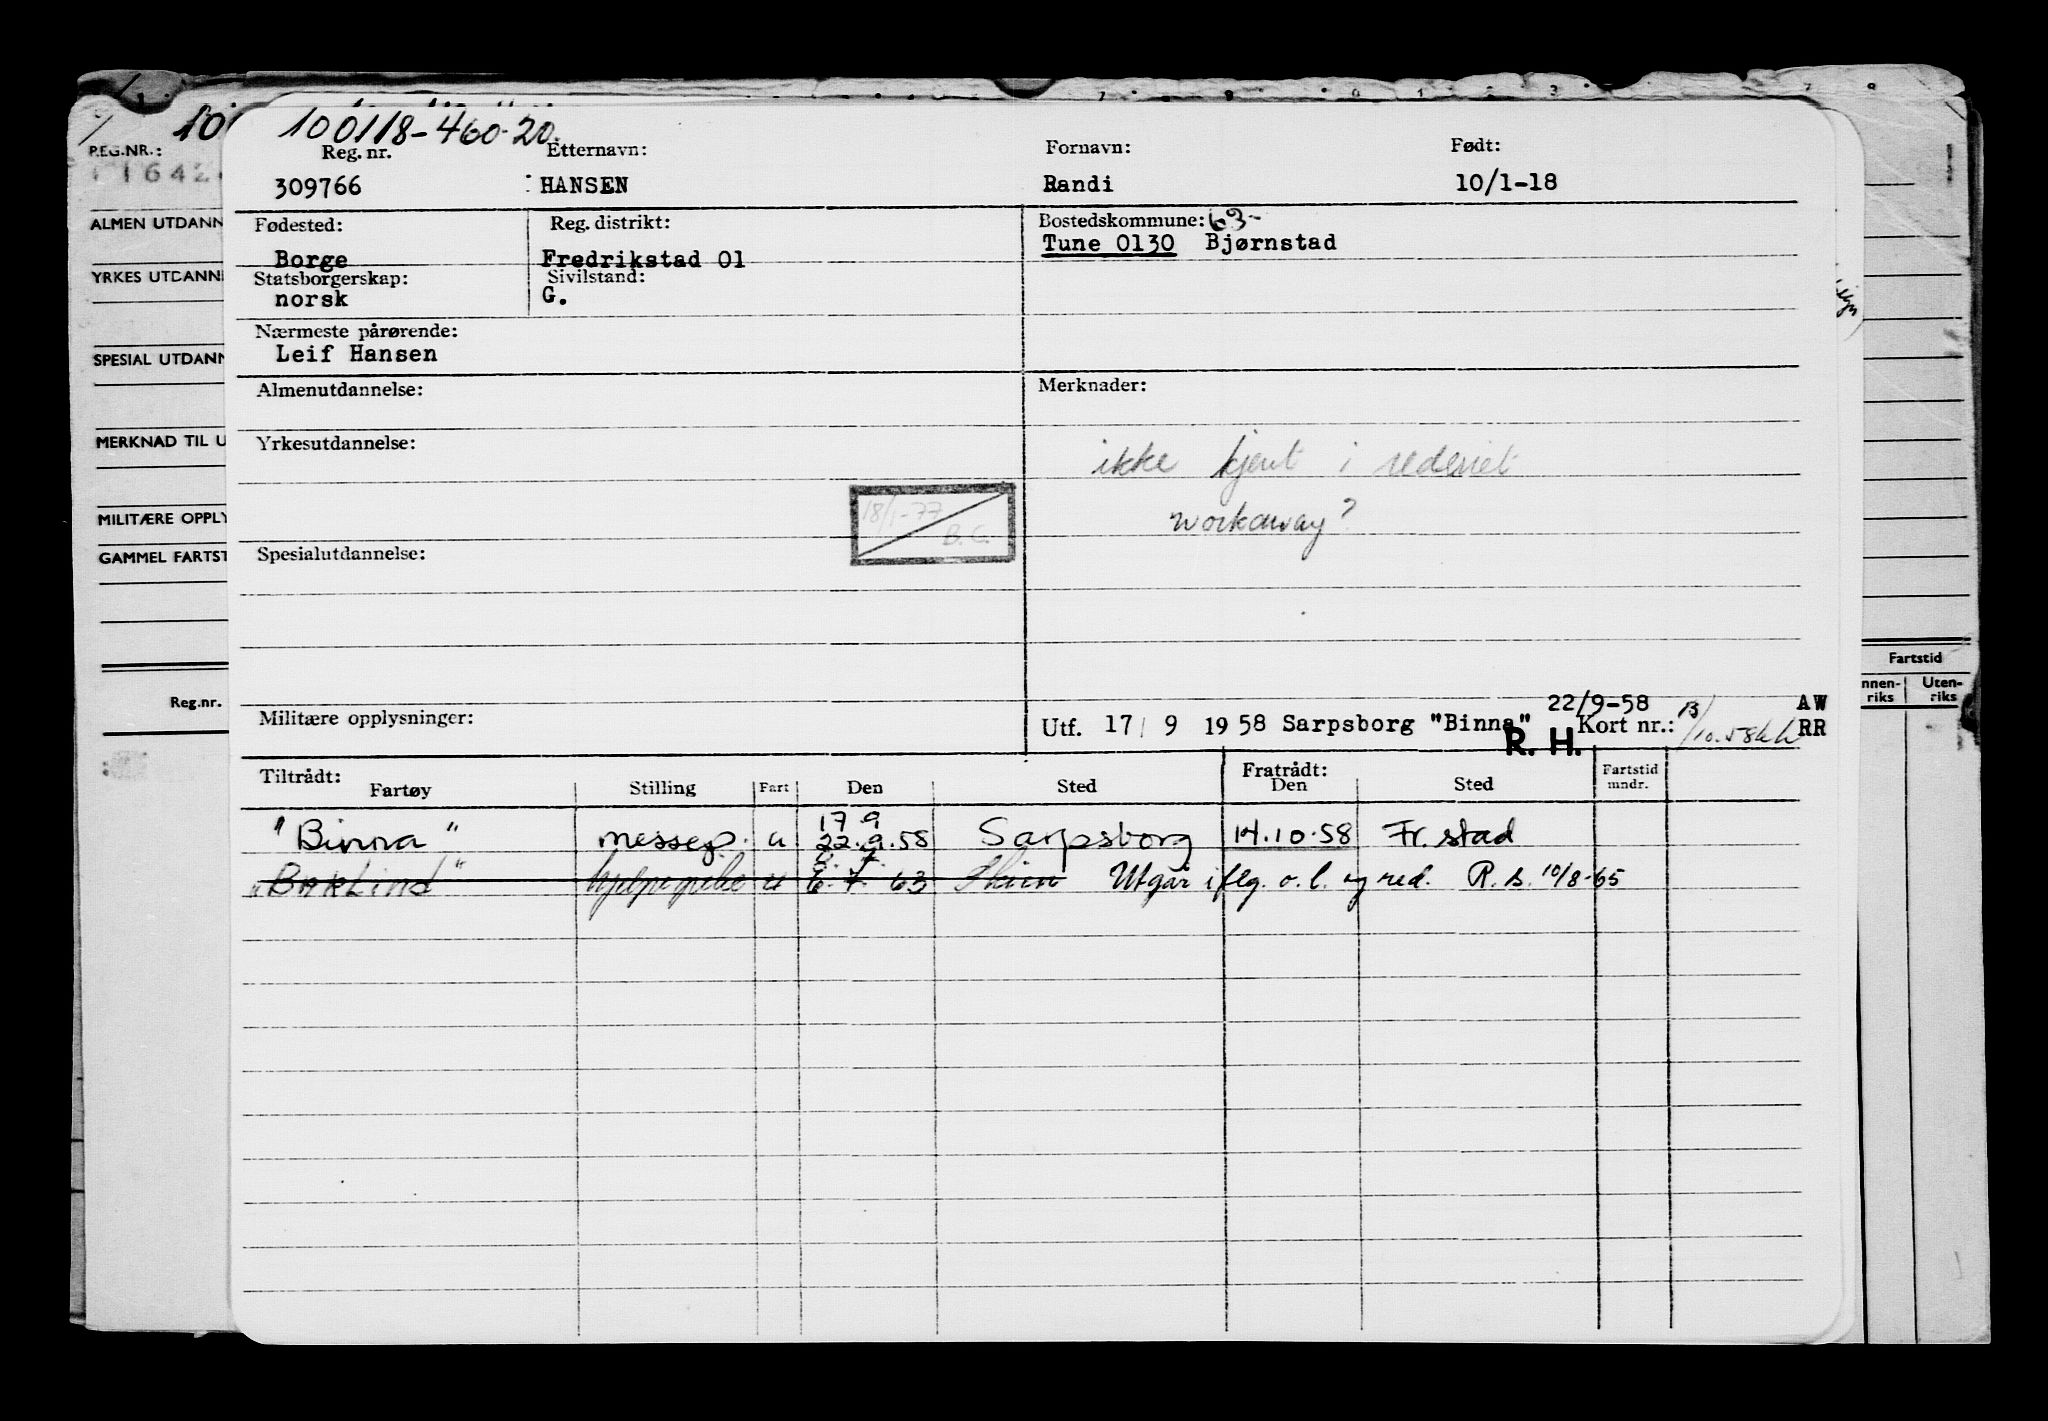 100118-460-20.
Reg. nr. Etternavn: Fornavn: Født:
309766 HANSEN Randi 10/1-18
Fødested: Reg. distrikt: Bostedskommune: 63-
Borge Fredrikstad 01 Tune 0130 Bjørnstad
Statsborgerskap: Sivilstand:
norsk G.
Nærmeste pårørende:
Leif Hansen
Almenutdannelse: Merknader:
Yrkesutdannelse: ikke kjent i rederiet
18/1-77 workaway?
B.C.
Spesialutdannelse:
22/9-58 AW
Militære opplysninger: Utf. 17/ 9 1958 Sarpsborg "Binna" Kort nr.: RR
R. H.
Tiltrådt: Fratrådt:
Fartøy Stilling Fart Den Sted Den Sted Fartstid mndr.
17.9
"Binna" messep. u 22.9.58 Sarpsborg 14.10.58 Fr.stad
6.7.63 Utgår iflg. o.l. og red. R.S. 10/8-65
REG.NR.:
ALMEN UTDANN
YRKES UTDANN
SPESIAL UTDANN
MERKNAD TIL U
MILITÆRE OPPLY
GAMMEL FARTST
Reg.nr.
Fartstid
nnen-riks Uten-riks